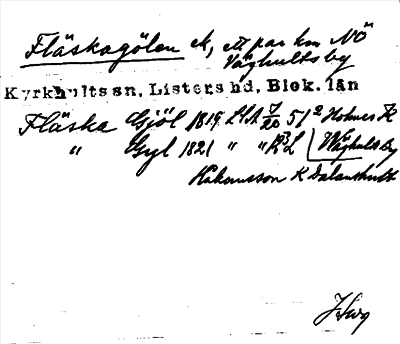 Fläskagölen ek, ett par km NÖ
Väghultsby
Kyrkhults sn, Listers hd, Blek. län
Fläska Gjöl 1819 LSA 7/20 51² Holmes K
" Gyl 1821 " " L Väghultsby
Hakansson K Dalanshult